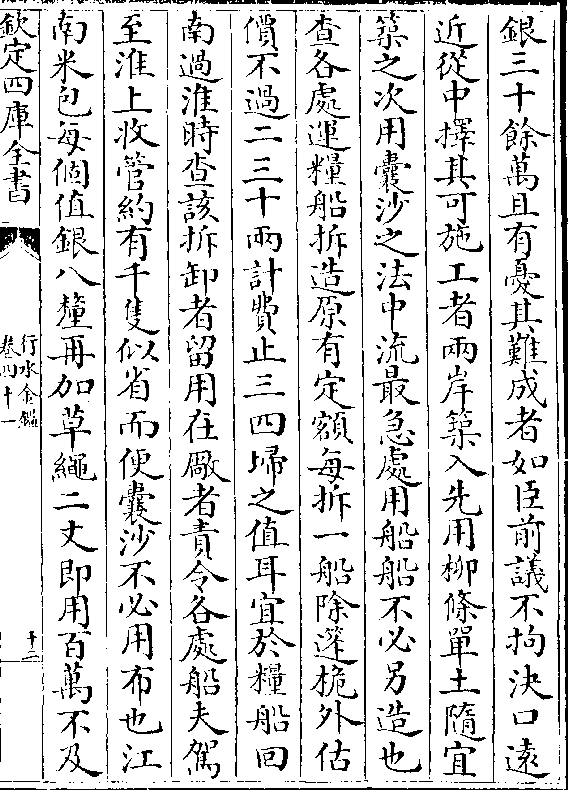 銀三十餘萬且有憂其難成者如臣前議不拘決口遠
近從中擇其可施工者兩岸築入先用柳條單土隨宜
築之次用囊沙之法中流最急處用船船不必另造也
查各處運糧船拆造原有定額每拆一船除篷桅外估
價不過二三十兩計費止三四埽之值耳宜於糧船回
南過淮時查該拆卸者留用在厰者責令各處船夫駕
至淮上收管約有千隻似省而便囊沙不必用布也江
南米包每個值銀八釐再加草繩二丈即用百萬不及
欽定四庫全書
行水金鑑
卷四十一
十二